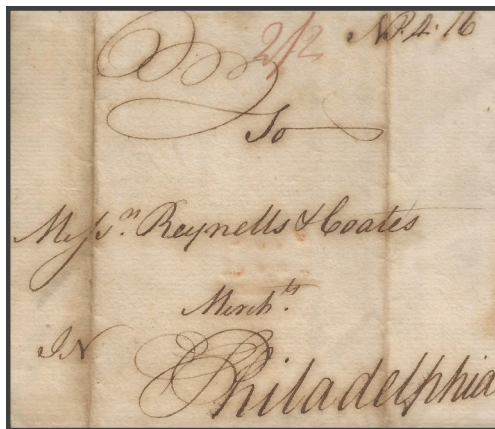 2/2 N.P. 4: 16
To
Messrs. Reynells & Coates
Merchts.
IN
Philadelphia